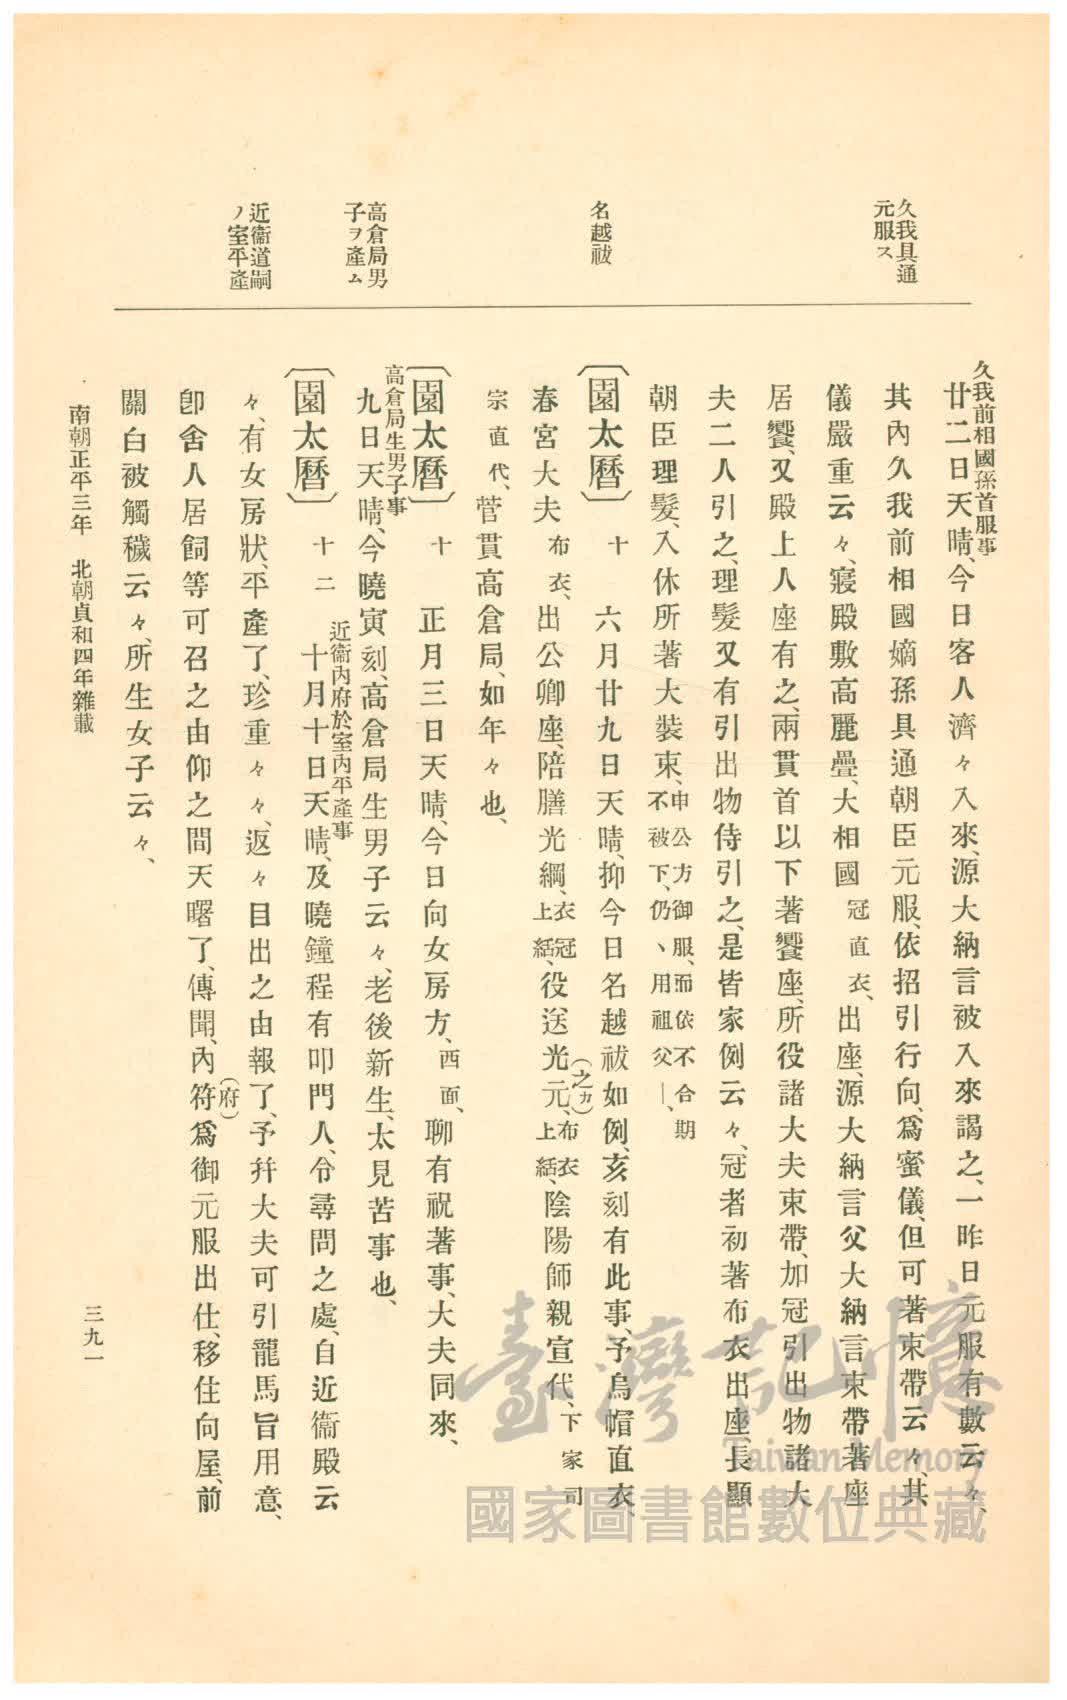 久我具通
元服ス
名越祓
高倉局男
子ヲ產ム
近衞道嗣
ノ室平產
久我前相國孫首服事
廿二日天晴、今日客人濟々入來、源大納言被入來謁之、一昨日元服有數云々、
其內久我前相國嫡孫具通朝臣元服、依招引行向、爲蜜儀、但可著束帶云々、其
儀嚴重云々、寢殿敷高麗疊、大相國冠直衣、出座、源大納言父大納言束帶著座
居饗、又殿上人座有之、兩貫首以下著饗座、所役諸大夫束帶、加冠引出物諸大
夫二人引之、理髮又有引出物侍引之、是皆家例云々、冠者初著布衣出座、長顯
朝臣理髮、入休所著大裝束、申公方御服、而依不合期
不被下、仍丶用祖父―、
〔園太曆〕 十 六月廿九日天晴、抑今日名越祓如例、亥刻有此事、予烏帽直衣、
(之カ)
春宮大夫布衣、出公卿座、陪膳光綱、衣冠
上結、役送光元、布衣
上結、陰陽師親宣代、下家司
宗直代、菅貫高倉局、如年々也、
〔園太曆〕 十 正月三日天晴、今日向女房方、西面、聊有祝著事、大夫同來、
高倉局生男子事
九日天晴、今曉寅刻、高倉局生男子云々、老後新生、太見苦事也、
近衞內府於室內平產事
〔園太曆〕 十二 十月十日天晴、及曉鐘程有叩門人、令尋問之處、自近衞殿云
々、有女房狀、平產了、珍重々々、返々目出之由報了、予幷大夫可引龍馬旨用意、
(府)
卽舍人居飼等可召之由仰之間天曙了、傳聞、內符爲御元服出仕、移住向屋、前
關白被觸穢云々、所生女子云々、
南朝正平三年 北朝貞和四年雜載
三九一
臺灣記憶
Taiwan Memory
國家圖書館數位典藏